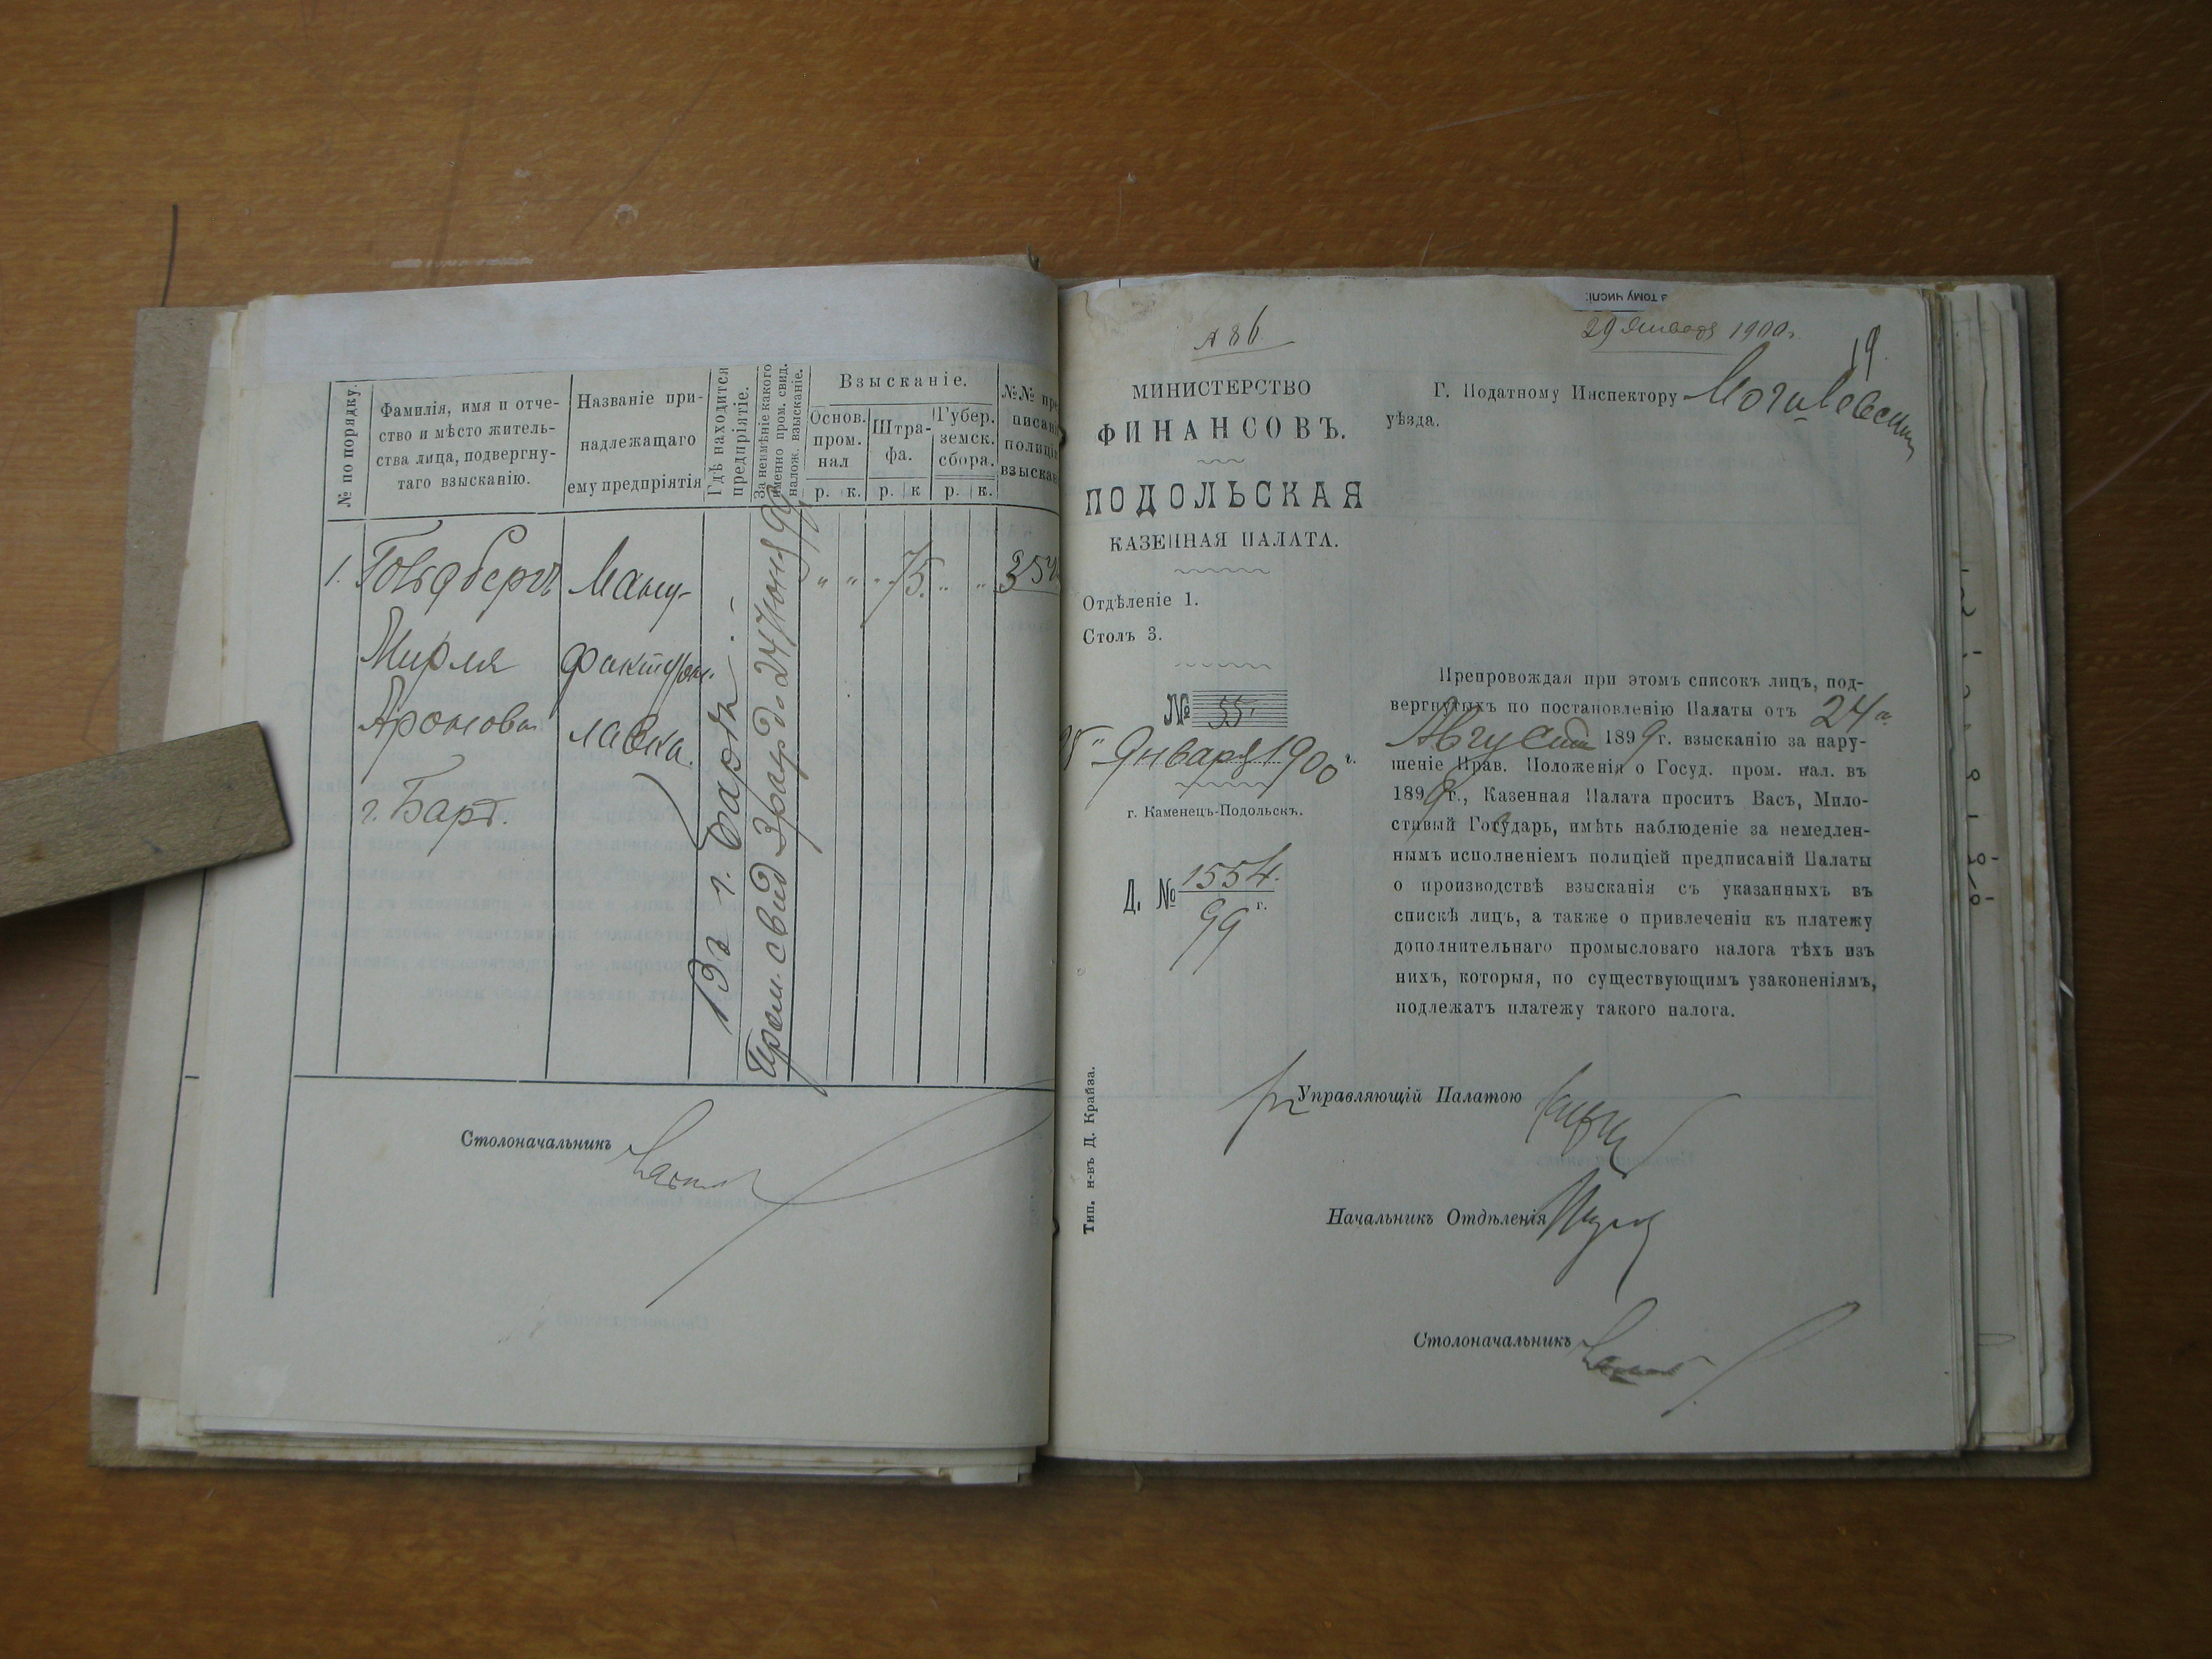 № по порядку.
Фамилія, имя и отче-
ство и мѣсто житель-
ства лица, подвергну-
таго взысканію.
Названіе при-
надлежащаго
ему предпріятія
Гдѣ находится
предпріятіе.
За неимѣніе какого
именно пром. свид.
налож. взысканіе.
Взысканіе.
Основ.
пром.
нал
Штра-
фа.
Губер.
земск.
сбора.
№№ пре
писан
полиці
взыскан
р. к. р. к р. к.
1. Гольдбергъ
Мирля
Аронова
г. Баръ.
Ману-
фактурн.
лавка.
Въ г. Барѣ
Пром. свид 3 разр. до 24 Іюня 99
" " " 75. " "
Столоначальникъ
з тому числі:
29 Января 1900 г.
19.
МИНИСТЕРСТВО
ФИНАНСОВЪ.
ПОДОЛЬСКАЯ
КАЗЕННАЯ ПАЛАТА.
Отдѣленіе 1.
Столъ 3.
№ 55.
Января 1900 г.
г. Каменецъ-Подольскъ.
Д. № 1554
99 г.
Тип. н-въ Д. Крайза.
Г. Податному Инспектору Могилевскаго
уѣзда.
Препровождая при этомъ списокъ лицъ, под-
вергнутыхъ по постановленію Палаты отъ 24
Августа 1899 г. взысканію за нару-
шеніе Прав. Положенія о Госуд. пром. нал. въ
1899 г., Казенная Палата проситъ Васъ, Мило-
стивый Государь, имѣть наблюденіе за немедлен-
нымъ исполненіемъ полиціей предписаній Палаты
о производствѣ взысканія съ указанныхъ въ
спискѣ лицъ, а также о привлеченіи къ платежу
дополнительнаго промысловаго налога тѣхъ изъ
нихъ, которыя, по существующимъ узаконеніямъ,
подлежатъ платежу такого налога.
Управляющій Палатою
Начальникъ Отдѣленія
Столоначальникъ